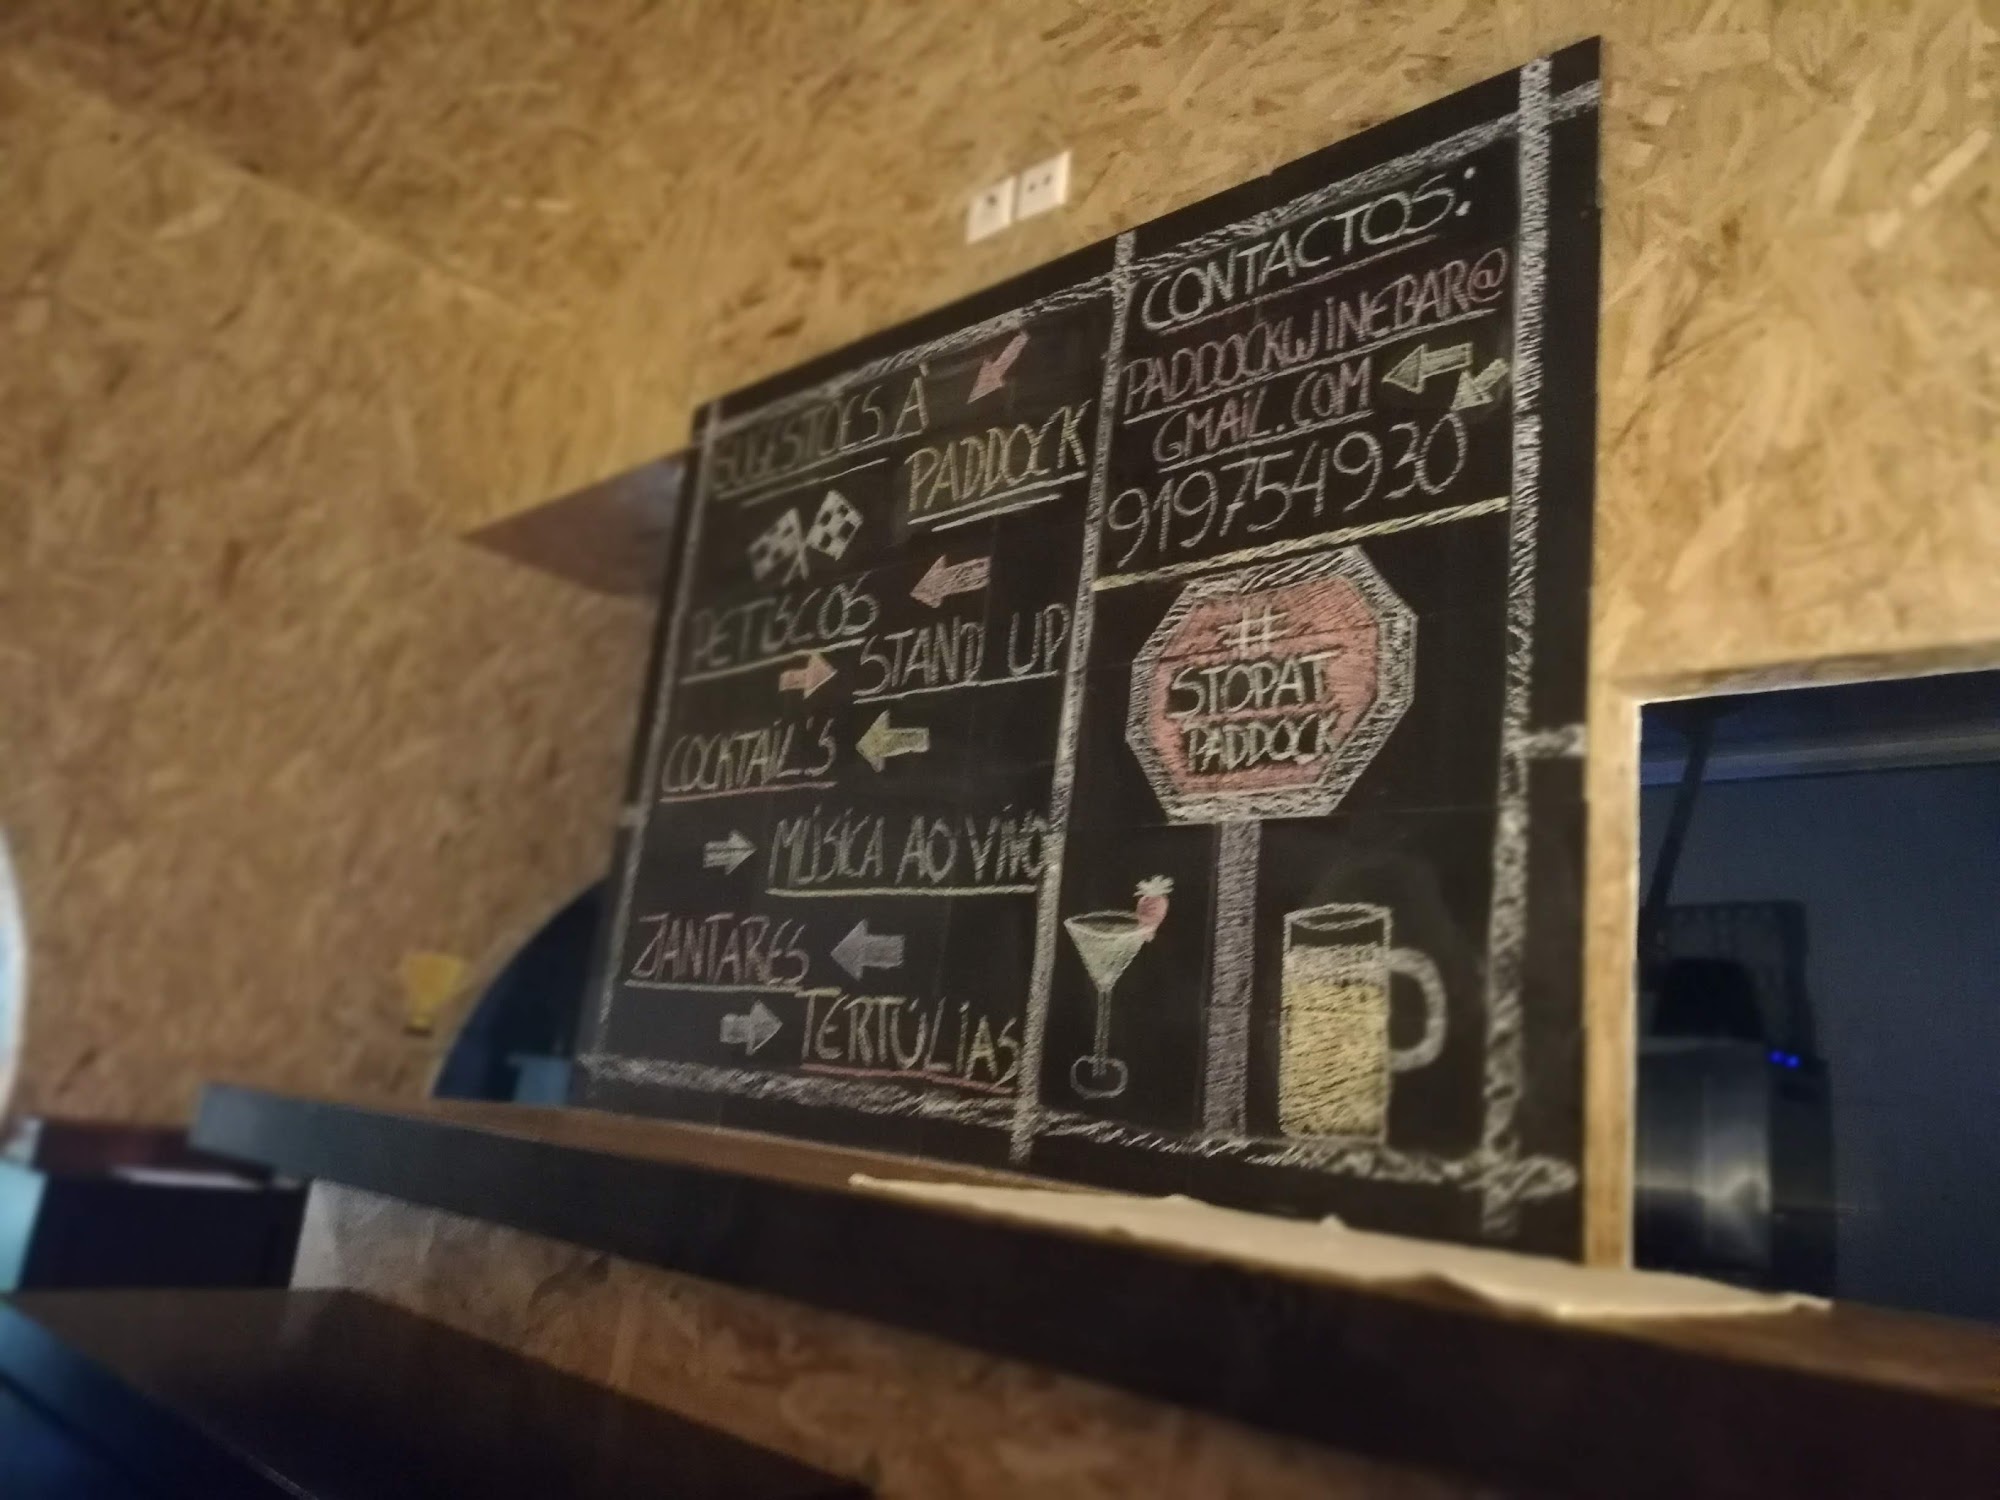 SUGESTÕES À
PADDOCK
PETISCOS
STAND UP
COCKTAIL'S
MÚSICA AO VIVO
JANTARES
TERTÚLIAS
CONTACTOS:
PADDOCKWINEBAR@
GMAIL.COM
919754930
#
STOPAT
PADDOCK